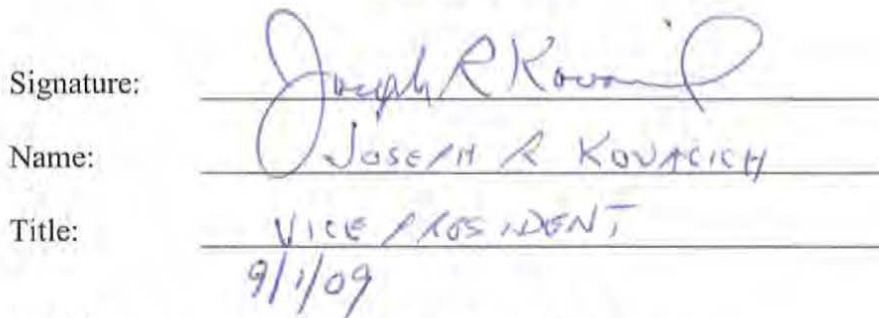 Signature: Joseph R Kovacich
Name: JOSEPH R KOVACICH
Title: VICE PRESIDENT
9/1/09